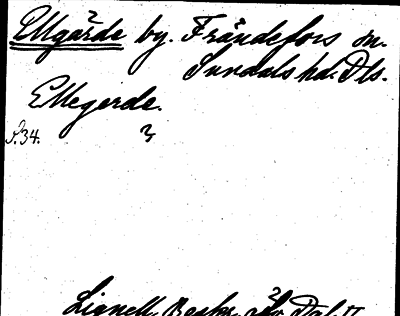 Ellgärde by. Frändefors sn.
Sundals hd. Dls.
Ellegerde.
s. 34.
Lignell, Beskr. över Dal II